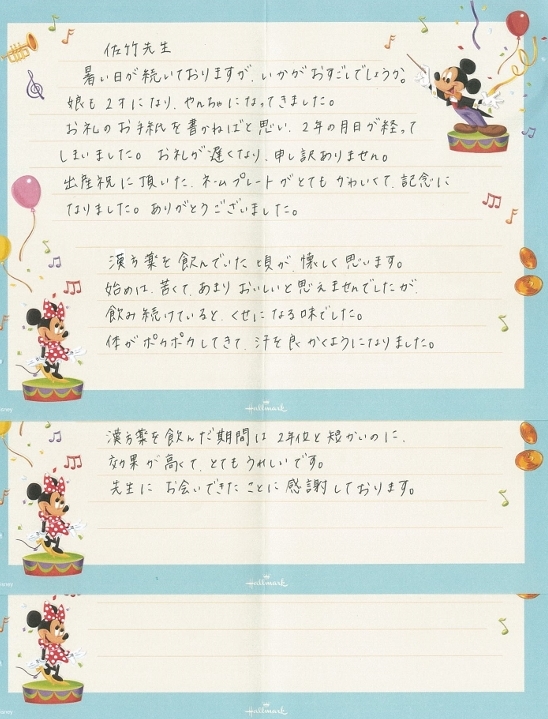 佐竹先生
暑い日が続いておりますが、いかがおすごしでしょうか。
娘も2才になり、やんちゃになってきました。
お礼のお手紙を書かねばと思い、2年の月日が経って
しまいました。 お礼が遅くなり、申し訳ありません。
出産祝に頂いた、ネームプレートがとてもかわいくて、記念に
なりました。ありがとうございました。
漢方薬を飲んでいた頃が、懐しく思います。
始めは、苦くて、あまりおいしいと思えませんでしたが、
飲み続けていると、くせになる味でした。
体がポカポカしてきて、汗を良くかくようになりました。
Hallmark
漢方薬を飲んだ期間は2年位と短かいのに、
効果が高くて、とてもうれしいです。
先生にお会いできたことに感謝しております。
Hallmark
Hallmark